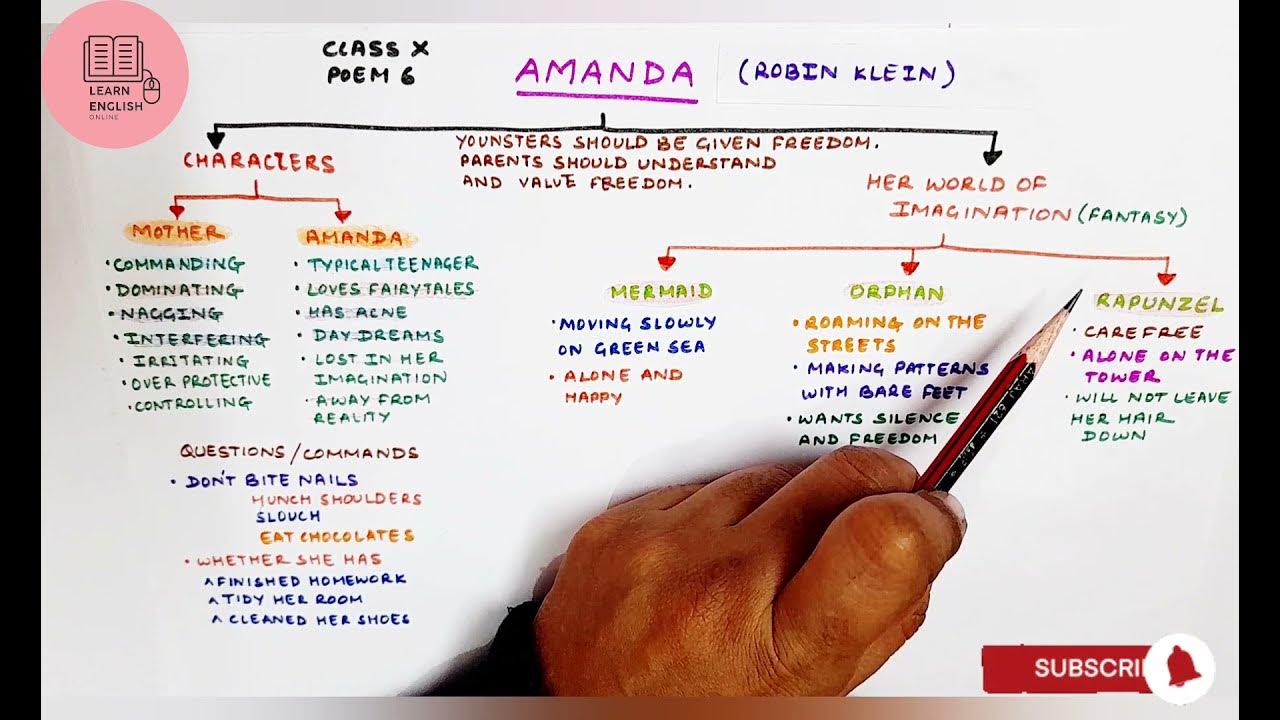 LEARN
ENGLISH
ONLINE
CLASS X
POEM 6
AMANDA (ROBIN KLEIN)
YOUNSTERS SHOULD BE GIVEN FREEDOM.
PARENTS SHOULD UNDERSTAND
AND VALUE FREEDOM.
CHARACTERS
MOTHER
• COMMANDING
• DOMINATING
• NAGGING
• INTERFERING
• IRRITATING
• OVER PROTECTIVE
• CONTROLLING
AMANDA
• TYPICAL TEENAGER
• LOVES FAIRYTALES
• HAS ACNE
• DAY DREAMS
• LOST IN HER
IMAGINATION
• AWAY FROM
REALITY
QUESTIONS/COMMANDS
• DON'T BITE NAILS
HUNCH SHOULDERS
SLOUCH
EAT CHOCOLATES
• WHETHER SHE HAS
^ FINISHED HOMEWORK
^ TIDY HER ROOM
^ CLEANED HER SHOES
HER WORLD OF
IMAGINATION (FANTASY)
MERMAID
• MOVING SLOWLY
ON GREEN SEA
• ALONE AND
HAPPY
ORPHAN
• ROAMING ON THE
STREETS
• MAKING PATTERNS
WITH BARE FEET
• WANTS SILENCE
AND FREEDOM
RAPUNZEL
• CAREFREE
• ALONE ON THE
TOWER
• WILL NOT LEAVE
HER HAIR
DOWN